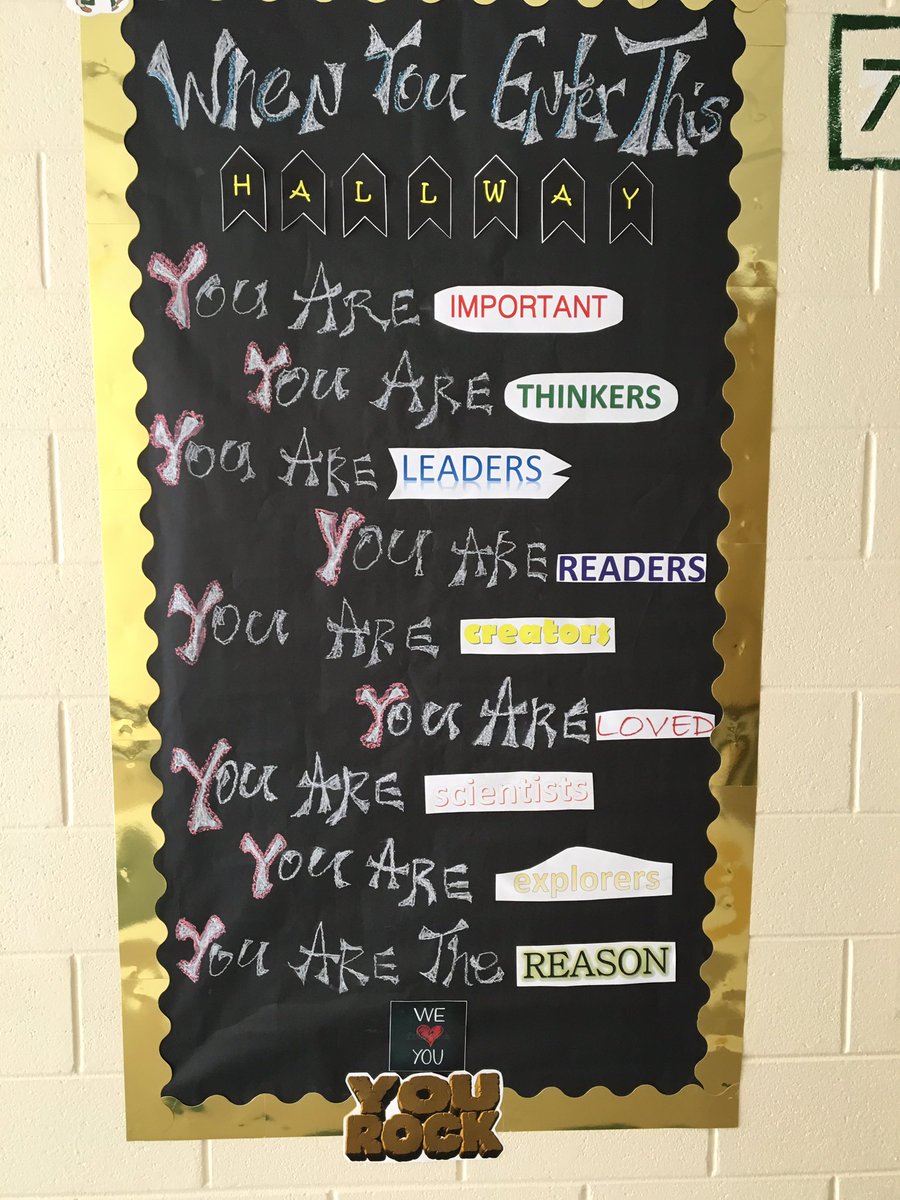 When You Enter This
HALLWAY
You Are IMPORTANT
You Are THINKERS
You Are LEADERS
You Are READERS
You Are creators
You Are LOVED
You Are scientists
You Are explorers
You Are The REASON
WE
YOU
YOU
ROCK
7